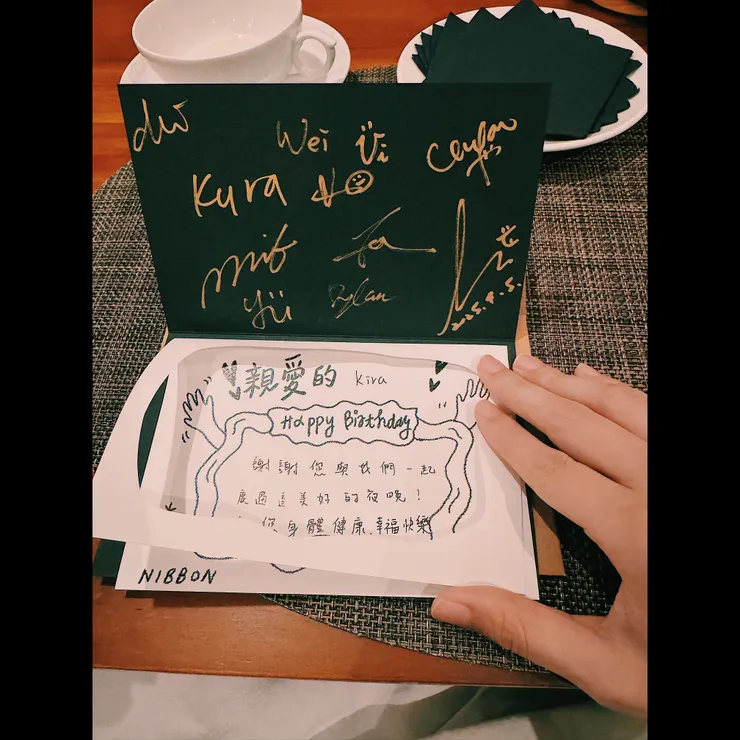 Wei
Kura
mif
yii
Dylan
2025.9.5.
親愛的 Kira
Happy Birthday
謝謝您與我們一起
度過這美好的夜晚！
您身體健康、幸福快樂
NIBBON